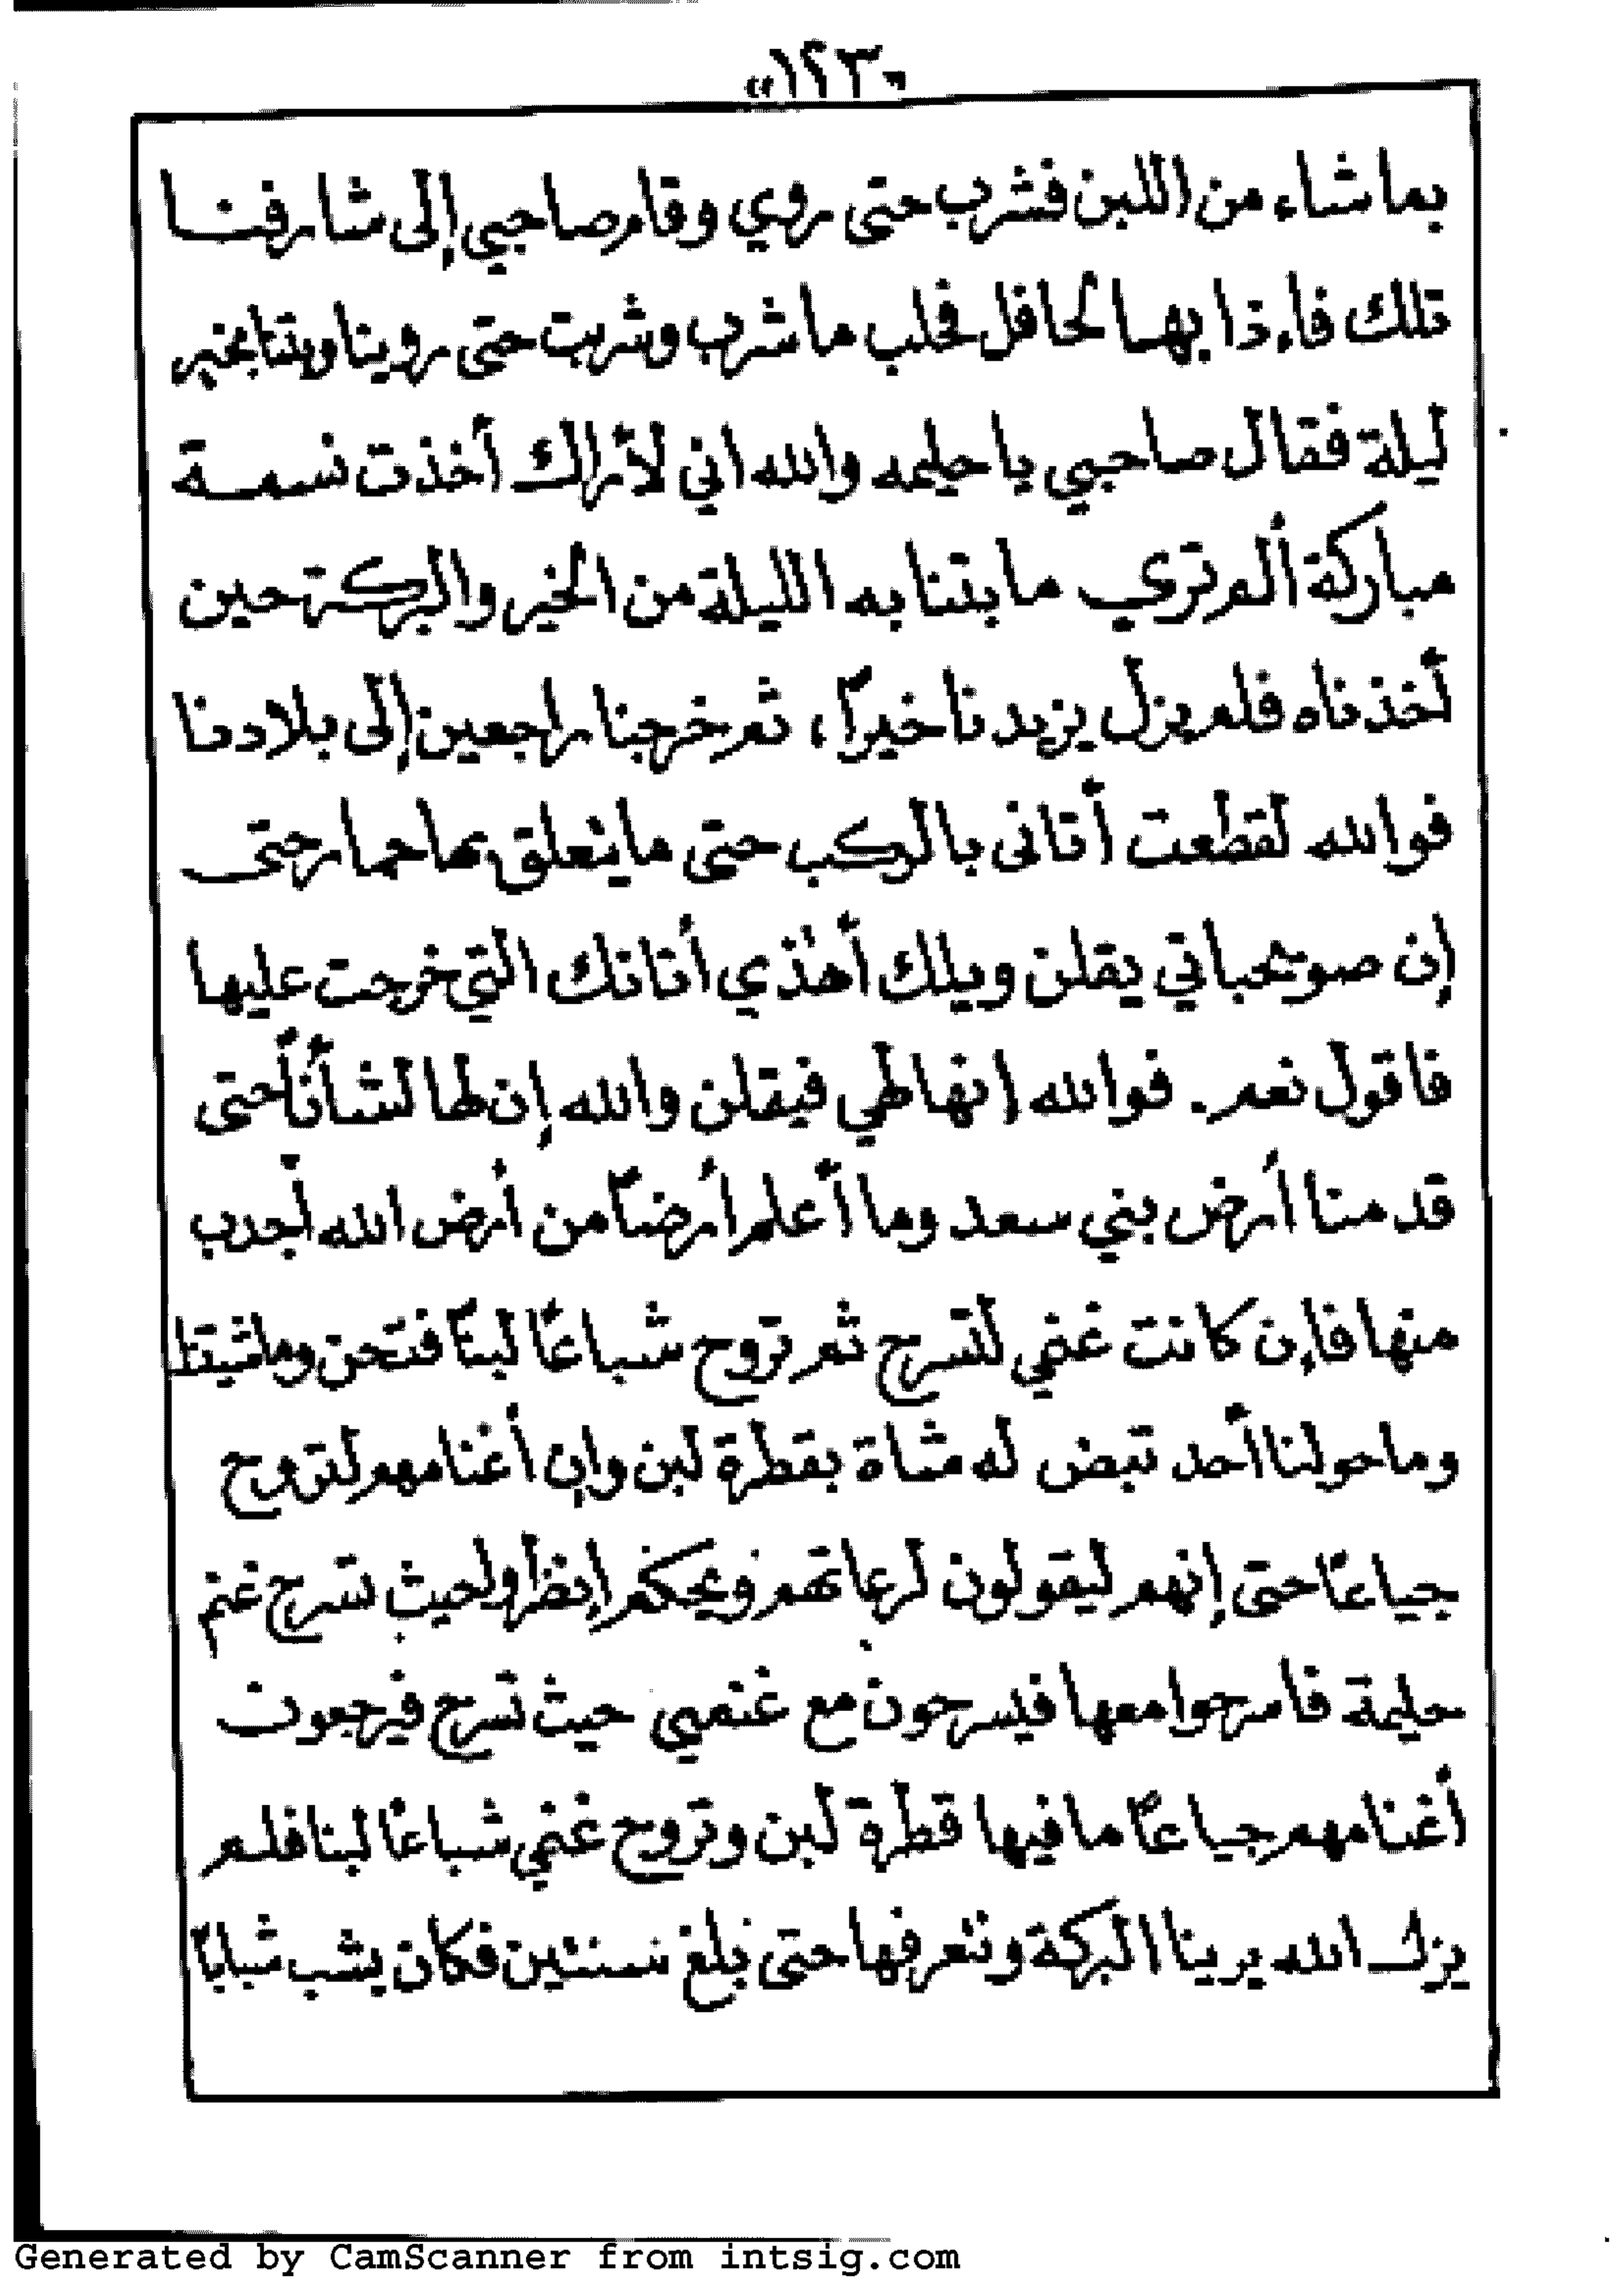 «١٢٣»
بما شاء من اللبن فشرب حتى روي وقام صاحبي إلى شارفنا
تلك فاءذا بها لحافل فحلب ما شرب وشربت حتى روينا وبتنا بخير
ليلة فقال صاحبي يا حليمه والله اني لأراك أخذت نسمة
مباركة ألم تري ما بتنا به الليلة من الخير والبركة حين
أخذناه فلم يزل يزيدنا خيراً، ثم خرجنا راجعين إلى بلادنا
فوالله لقطعت أتانى بالركب حتى ما يتعلق بها حمار حتى
إن صويحباتي يقلن ويلك أهذي أتانك التي خرجت عليها
فاقول نعم. فوالله إنها لهي فيقلن والله إن لها لشأناً حتى
قدمنا أرض بني سعد وما أعلم أرضاً من أرض الله أجدب
منها فاءن كانت غنمي لتسرح ثم تروح شباعاً لبناً فنحن وماشيتنا
وما حولنا أحد تبض له شاة بقطرة لبن وإن أغنامهم لتروح
جياعاً حتى إنهم ليقولون لرعاتهم ويحكم إنظروا حيث تسرح غنم
حليمة فاسرحوا معها فيسرحون مع غنمي حيث تسرح فيرجعون
أغنامهم جياعاً ما فيها قطرة لبن وتروح غنمي شباعاً لبنا فلم
يزل الله يرينا البركة ونتعرفها حتى بلغ سنتين فكان يشب شبابا
Generated by CamScanner from intsig.com